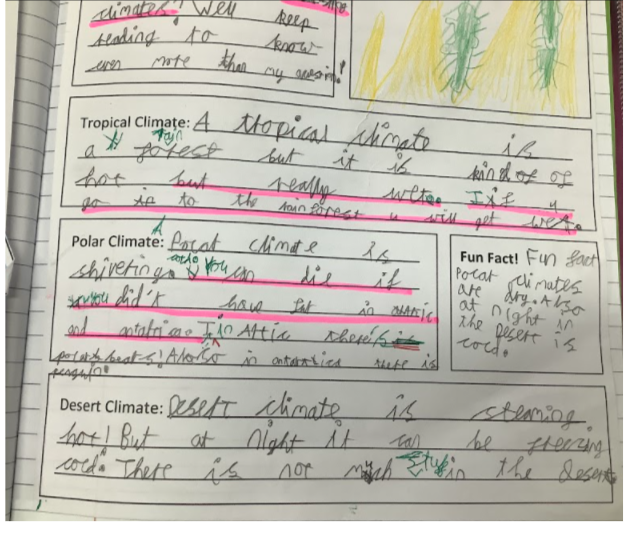 climates! Well keep
reading to know
even more than my awesin!
Tropical Climate: A tropical climate is
a rain forest but it is kind of of
hot but really wet. If u
go in to the rainforest u will get wet.
Polar Climate: A Polar climate is
shivering cold. You can die if
you did't have fat in
and In there's
polar bears! Also in there is
penguin.
Fun Fact! Fun fact
Polar climates
are dry. Also
at night in
the desert is
cold.
Desert Climate: Desert climate is steaming
hot! But at night it can be freezing
cold. There is not much stuff in the desert